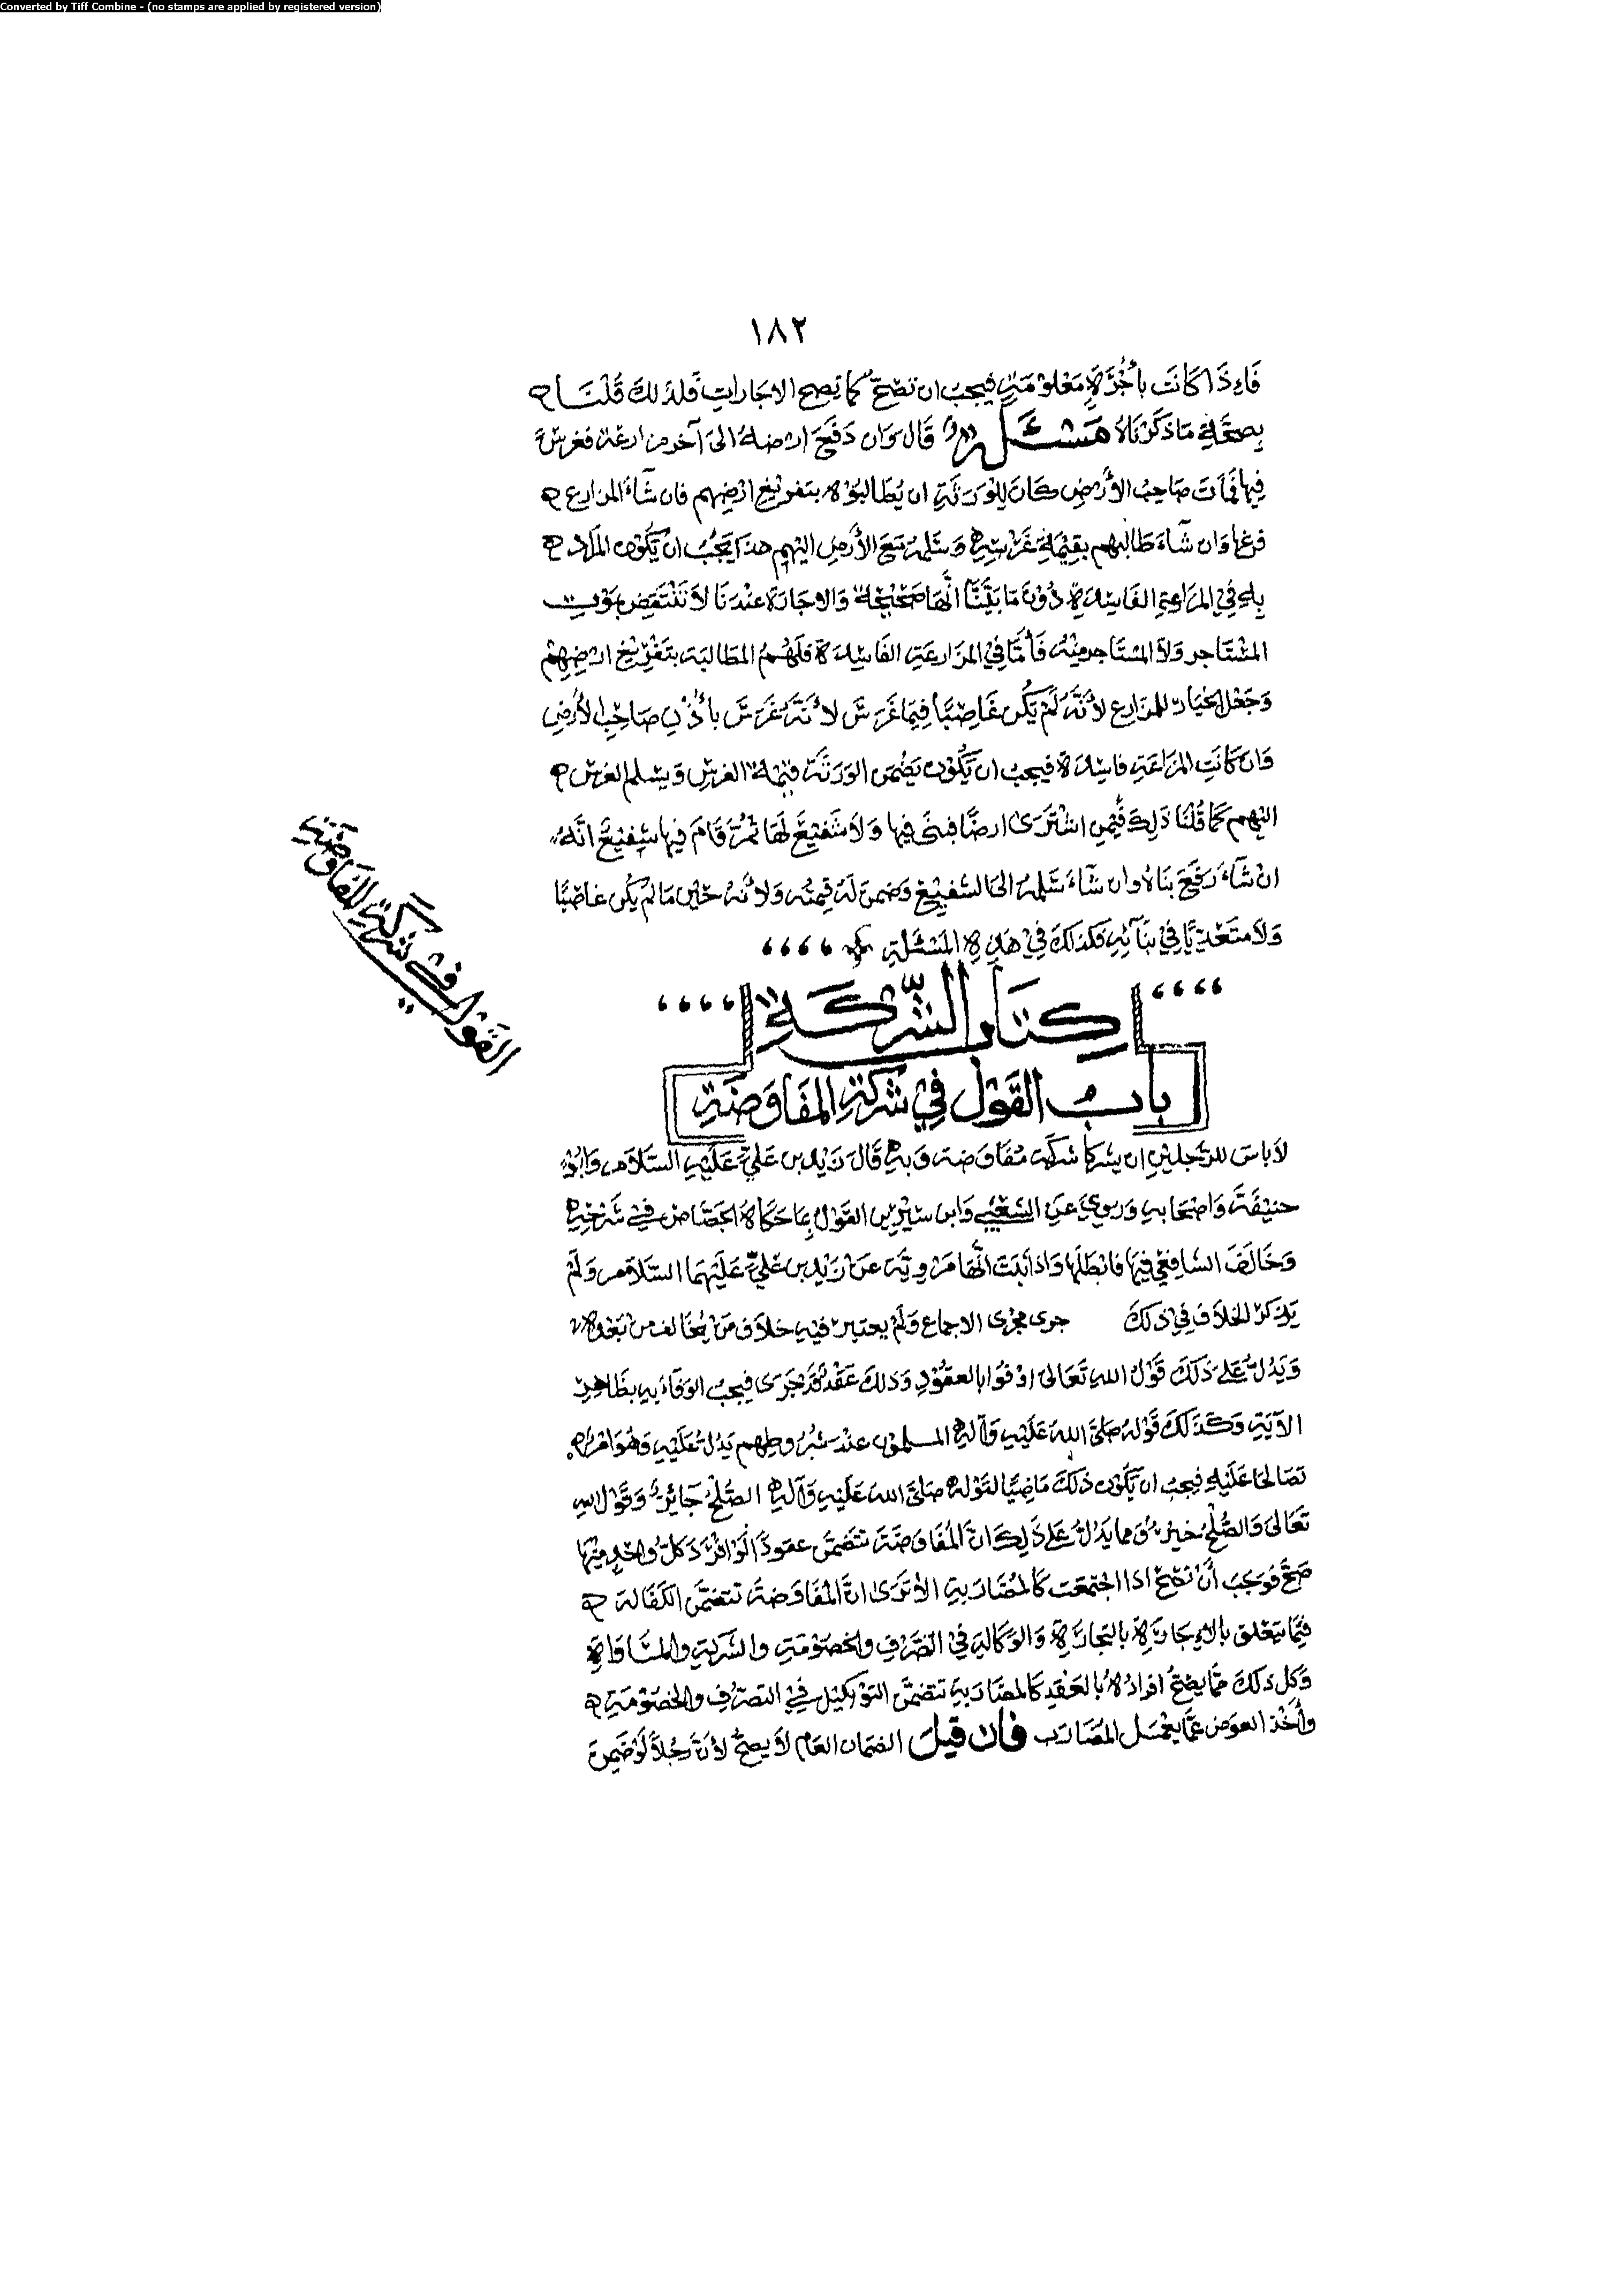 Converted by Tiff Combine - (no stamps are applied by registered version)
١٨٢
فَاءِذَا كَانَت بأُجْرَةٍ مَعْلُوْمَةٍ فيجب ان تصحّ كما تصح الاجاراتِ فَلذلكَ قُلْنَا
بِصحَّةِ مَا ذَكَرْنَاهُ مَسْئَلَةٌ قَال وَان دَفَعَ ارضهُ الىَ آخر مزارعة فغرسَ
فيها فمَاتَ صَاحِبُ الأرْضِ كَانَ لِلْوَرَثَةِ ان يُطَالبُوْه بتفريغ ارْضِهم فان شآءَ المزارع
فرغها وَان شآءَ طَالبهم بقِيْمَةِ غَرْسِهِ وَسَلمهُ مَعَ الأرْضِ اليْهِم هذا يَجبُ انْ يَكُوْن المرَاد
بِهِ فِي المزارعةِ الفَاسِدَةِ دُوْنَ مَا بَيَّنَّا انَّهَا صَحِيْحَةٌ وَالاجَارَة عنْدَنَا لاَ تَنْتَقِض بمَوْتِ
المسْتَاجر وَلاَ المسْتَاجر مِنْهُ فَأمَّا فِي المزَارعَةِ الفَاسِدَة فلَهُمُ المطَالبَة بتَفْرِيْغ ارْضِهِمْ
وَجَعْل الخيَار للمزارع لأنَّهُ لَمْ يَكُن غَاصِبًا فِيمَا غَرَسَ لاَنَّهُ غَرَسَ باُذْنِ صَاحِبِ الأرْضِ
وَان كَانَتِ المزَارَعَةِ فاسِدَة فيجبُ ان يَكُوْن يَضْمَن الوَرَثَة قِيْمَة الغرسِ وَيسْلم الغرس
اليْهِم كَمَا قُلْنَا ذَلِكَ فِيْمن اشْتَرَى ارضًا فبنى فيها وَلاَ شَفِيْعَ لَهَا ثُمَّ قَامَ فيها شَفِيْعٌ انَّهُ
انْ شآءَ رَفَعَ بنَاهُ وان شآءَ سَلمهُ الى الشَّفِيْعِ وَضمن لَهُ قيمتُه وَلأنَّهُ حَاين مَا لَمْ يَكُن غاصبًا
وَلاَ متَعَدِّيًا فِي بنَآئهِ فكذلكَ فِي هَذِهِ المَسْئَلَةِ
كتَاب الشَّركَةِ
بَاب القَوْل فِي شركة المفَاوَضَةِ
القَوْل فِي شركة المفَاوَضَةِ
لاَ باسَ للرَّجلينِ ان يشركا شركَة مُفَاوَضة وَبهِ قَال زَيْد بن عَليٍّ عَلَيْهِ السَّلاَم وَابُوْ
حنِيْفَة وَاصْحَابهِ وَرُوِيَ عَن الشَّعْبِي وَابن سِيْرِين القَوْل بِهَا حَكَاهُ الجَصَّاص فِي شَرْحِهِ
وَخَالَفَ الشَّافِعِي فِيْهَا فَابْطَلَهَا وَاذا ثَبَتَ انَّهَا مَرْوِيَّة عَن زَيْد بن عَليٍّ عَلَيْهِمَا السَّلاَم وَلَمْ
يَذْكر الخلاَف فِي ذلكَ جرى مجْرى الاجماع وَلَمْ يعتبر فيهِ خلاَف مَن يُخَالف من بَعْده
وَيَدُلُّ عَلىَ ذلكَ قَوْل الله تَعَالى اوْفُوا بالعقُوْدِ وَذلكَ عَقْدٌ قَدْ جَرَى فيجبُ الوفآء بهِ بظَاهر
الآيَةِ وَكَذَلكَ قَوْله صَلَّى الله عَلَيْهِ وَآلهِ المسلموْن عنْد شُرُوطهم يَدُلّ عَلَيْهِ وَهُوَ امْرٌ
تصَالحَا عَلَيْهِ فيجبُ ان يَكُوْن ذلكَ مَاضِيًا لقَوْلهِ صَلَّى الله عَلَيْهِ وَآلهِ الصُّلحُ جَائز وَقَوْل الله
تَعَالىَ وَالصُّلْحُ خيرٌ وَمما يَدُلُّ عَلىَ ذَلِكَ انَّ المُفَاوَضَة تتضَمَّن عقودًا لَوْ انْفَرَدَ كلُّ واحِدٍ مِنْهَا
صَحَّ فوَجَبَ أنْ تصِحَّ اذا اجْتمعَت كَالمُضَارَبةِ الاَ تَرى انَّ المُفَاوَضَة تتضمَّن الكفَالة
فِيْمَا يتعَلق بالاِجَارَةِ بالتجَارَةِ وَالوَكَالة فِي التصَرُّفِ والخصُوْمَةِ والشركَةِ والمسَاوَاةِ
وَكل ذلكَ ممَّا يصحُّ افرادُهُ بالعَقْدِ كَالمضَارَبةِ تتضمَّن التوْكيْل فِي التصَرُّفِ والخصُوْمَةِ
وأخْذ العوض عمَّا يعْمَل المُضَارَب فان قيلَ الضمان العام لاَ يصحُّ لأنَّ رَجُلاً لَوْ ضَمِنَ